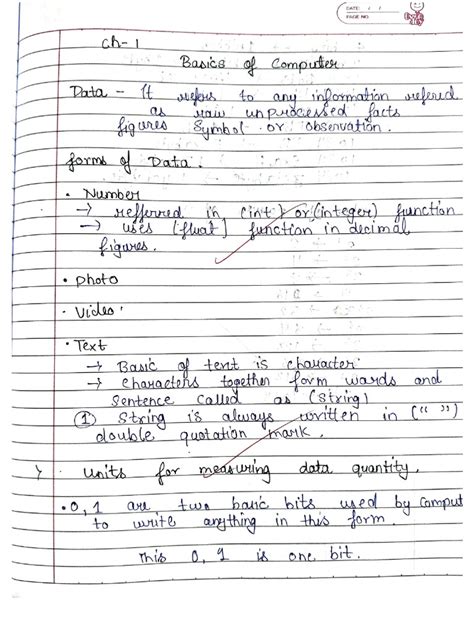 DATE: / /
PAGE NO.
Ch-1
Basics of Computer
Data - It refers to any information refered
as raw unprocessed facts
figures Symbol or observation.
forms of Data.
• Number
→ refferred in (int) or (integer) function
→ uses [float] function in decimal
figures.
• photo
• Video
• Text
→ Basic of text is character
→ characters together form words and
sentence called as (String)
① String is always written in (“ ”)
double quotation mark.
• Units for measuring data quantity.
• 0, 1 are two basic bits used by Comput
to write anything in this form.
This 0, 1 is one bit.